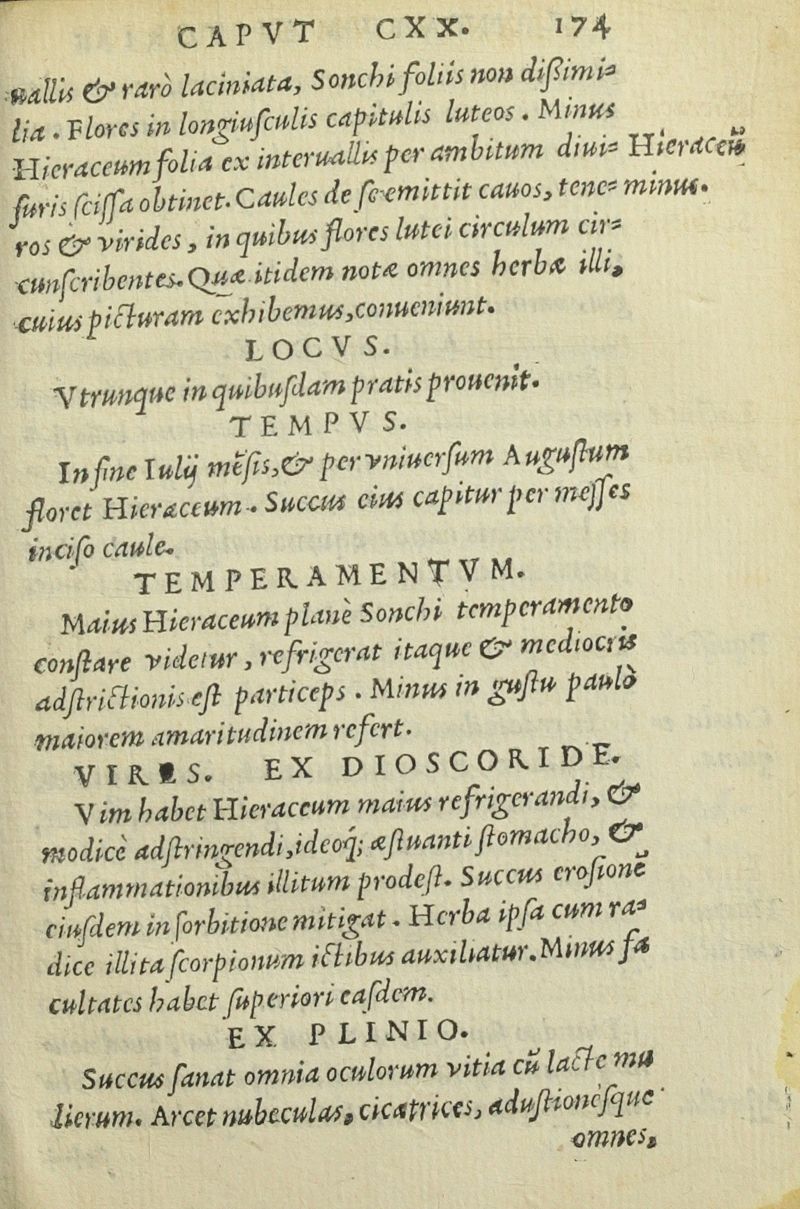 CAPVT CXX. 174
uallis & rarò laciniata, Sonchi foliis non dißimi-
lia. Flores in longiusculis capitulis luteos. Minus
Hieraceum folia ex interuallis per ambitum diui-
Hieraceũ
suris scissa obtinet. Caules de se emittit cauos, tene-
minus.
ros & virides, in quibus flores lutei circulum cir-
cunscribentes. Quæ itidem notæ omnes herbæ illi,
cuius picturam exhibemus, conueniunt.
LOCVS.
Vtrunque in quibusdam pratis prouenit.
TEMPVS.
In fine Iulij mẽsis, & per vniuersum Augustum
floret Hieraceum. Succus eius capitur per messes
inciso caule.
TEMPERAMENTVM.
Maius Hieraceum planè Sonchi temperamento
constare videtur, refrigerat itaque & mediocris
adstrictionis est particeps. Minus in gustu paulò
maiorem amaritudinem refert.
VIRES. EX DIOSCORIDE.
Vim habet Hieraceum maius refrigerandi, &
modicè adstringendi, ideoq́; æstuanti stomacho, &
inflammationibus illitum prodest. Succus erosione
eiusdem in sorbitione mitigat. Herba ipsa cum ra-
dice illita scorpionum ictibus auxiliatur. Minus fa
cultates habet superiori easdem.
EX PLINIO.
Succus sanat omnia oculorum vitia cũ lacte mu
lierum. Arcet nubeculas, cicatrices, adustionésque
omnes,